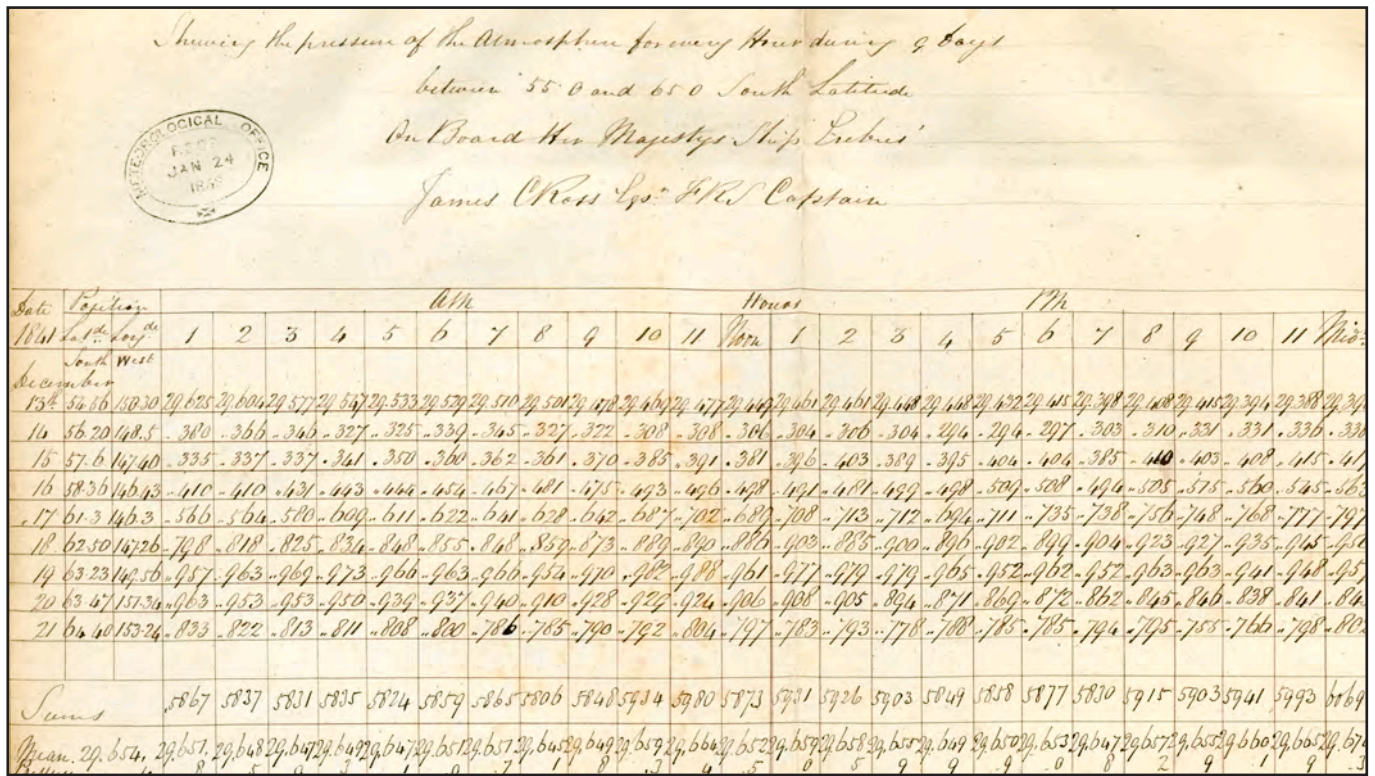 Shewing the pressure of the Atmosphere for every Hour during 9 days
between 55.0 and 65.0 South Latitude
On Board Her Majestys Ship Erebus'
James C Ross Esqr FRS Captain
METEOROLOGICAL OFFICE
JAN 24
Date Position AM Hours PM
1841 Latde Longde 1 2 3 4 5 6 7 8 9 10 11 Noon 1 2 3 4 5 6 7 8 9 10 11 Midt
South West
December
13th 54.56 150.30 29.625 29.604 29.577 29.547 29.533 29.529 29.510 29.501 29.478 29.469 29.477 29.449 29.461 29.461 29.448 29.448 29.432 29.415 29.398 29.408 29.415 29.394 29.388 29.39
14 56.20 148.5 .380 .366 .346 .327 .325 .339 .345 .327 .322 .308 .308 .306 .304 .306 .304 .294 .294 .297 .303 .310 .331 .331 .336 .33
15 57.6 147.40 .335 .337 .337 .341 .350 .360 .362 .361 .370 .385 .391 .381 .396 .403 .389 .395 .404 .404 .385 .410 .403 .408 .415 .41
16 58.36 146.43 .410 .410 .431 .443 .444 .454 .467 .481 .475 .493 .496 .498 .491 .481 .499 .498 .509 .508 .494 .505 .515 .560 .545 .56
17 61.3 146.3 .566 .564 .580 .609 .611 .622 .641 .628 .642 .687 .702 .689 .708 .713 .712 .694 .711 .735 .738 .756 .748 .768 .777 .797
18 62.50 147.26 .798 .818 .825 .834 .848 .855 .848 .859 .873 .889 .890 .886 .903 .885 .900 .896 .902 .899 .904 .923 .927 .935 .945 .95
19 63.23 149.56 .957 .963 .969 .973 .966 .963 .966 .954 .970 .982 .988 .961 .977 .979 .979 .965 .952 .962 .952 .963 .963 .941 .948 .95
20 63.47 151.34 .963 .953 .953 .950 .939 .937 .940 .910 .928 .929 .924 .906 .908 .905 .894 .871 .869 .872 .862 .845 .846 .838 .841 .84
21 64.40 153.24 .833 .822 .813 .811 .808 .800 .786 .785 .790 .792 .804 .797 .783 .793 .778 .788 .785 .785 .794 .795 .755 .766 .798 .80
Sums 5867 5837 5831 5835 5824 5859 5865 5806 5848 5934 5980 5873 5931 5926 5903 5849 5858 5877 5830 5915 5903 5941 5993 6069
Mean. 29.654. 29.651. 29.648 29.647 29.648 29.647 29.651 29.651 29.645 29.649 29.659 29.664 29.652 29.659 29.658 29.655 29.649 29.650 29.653 29.647 29.657 29.655 29.660 29.665 29.674